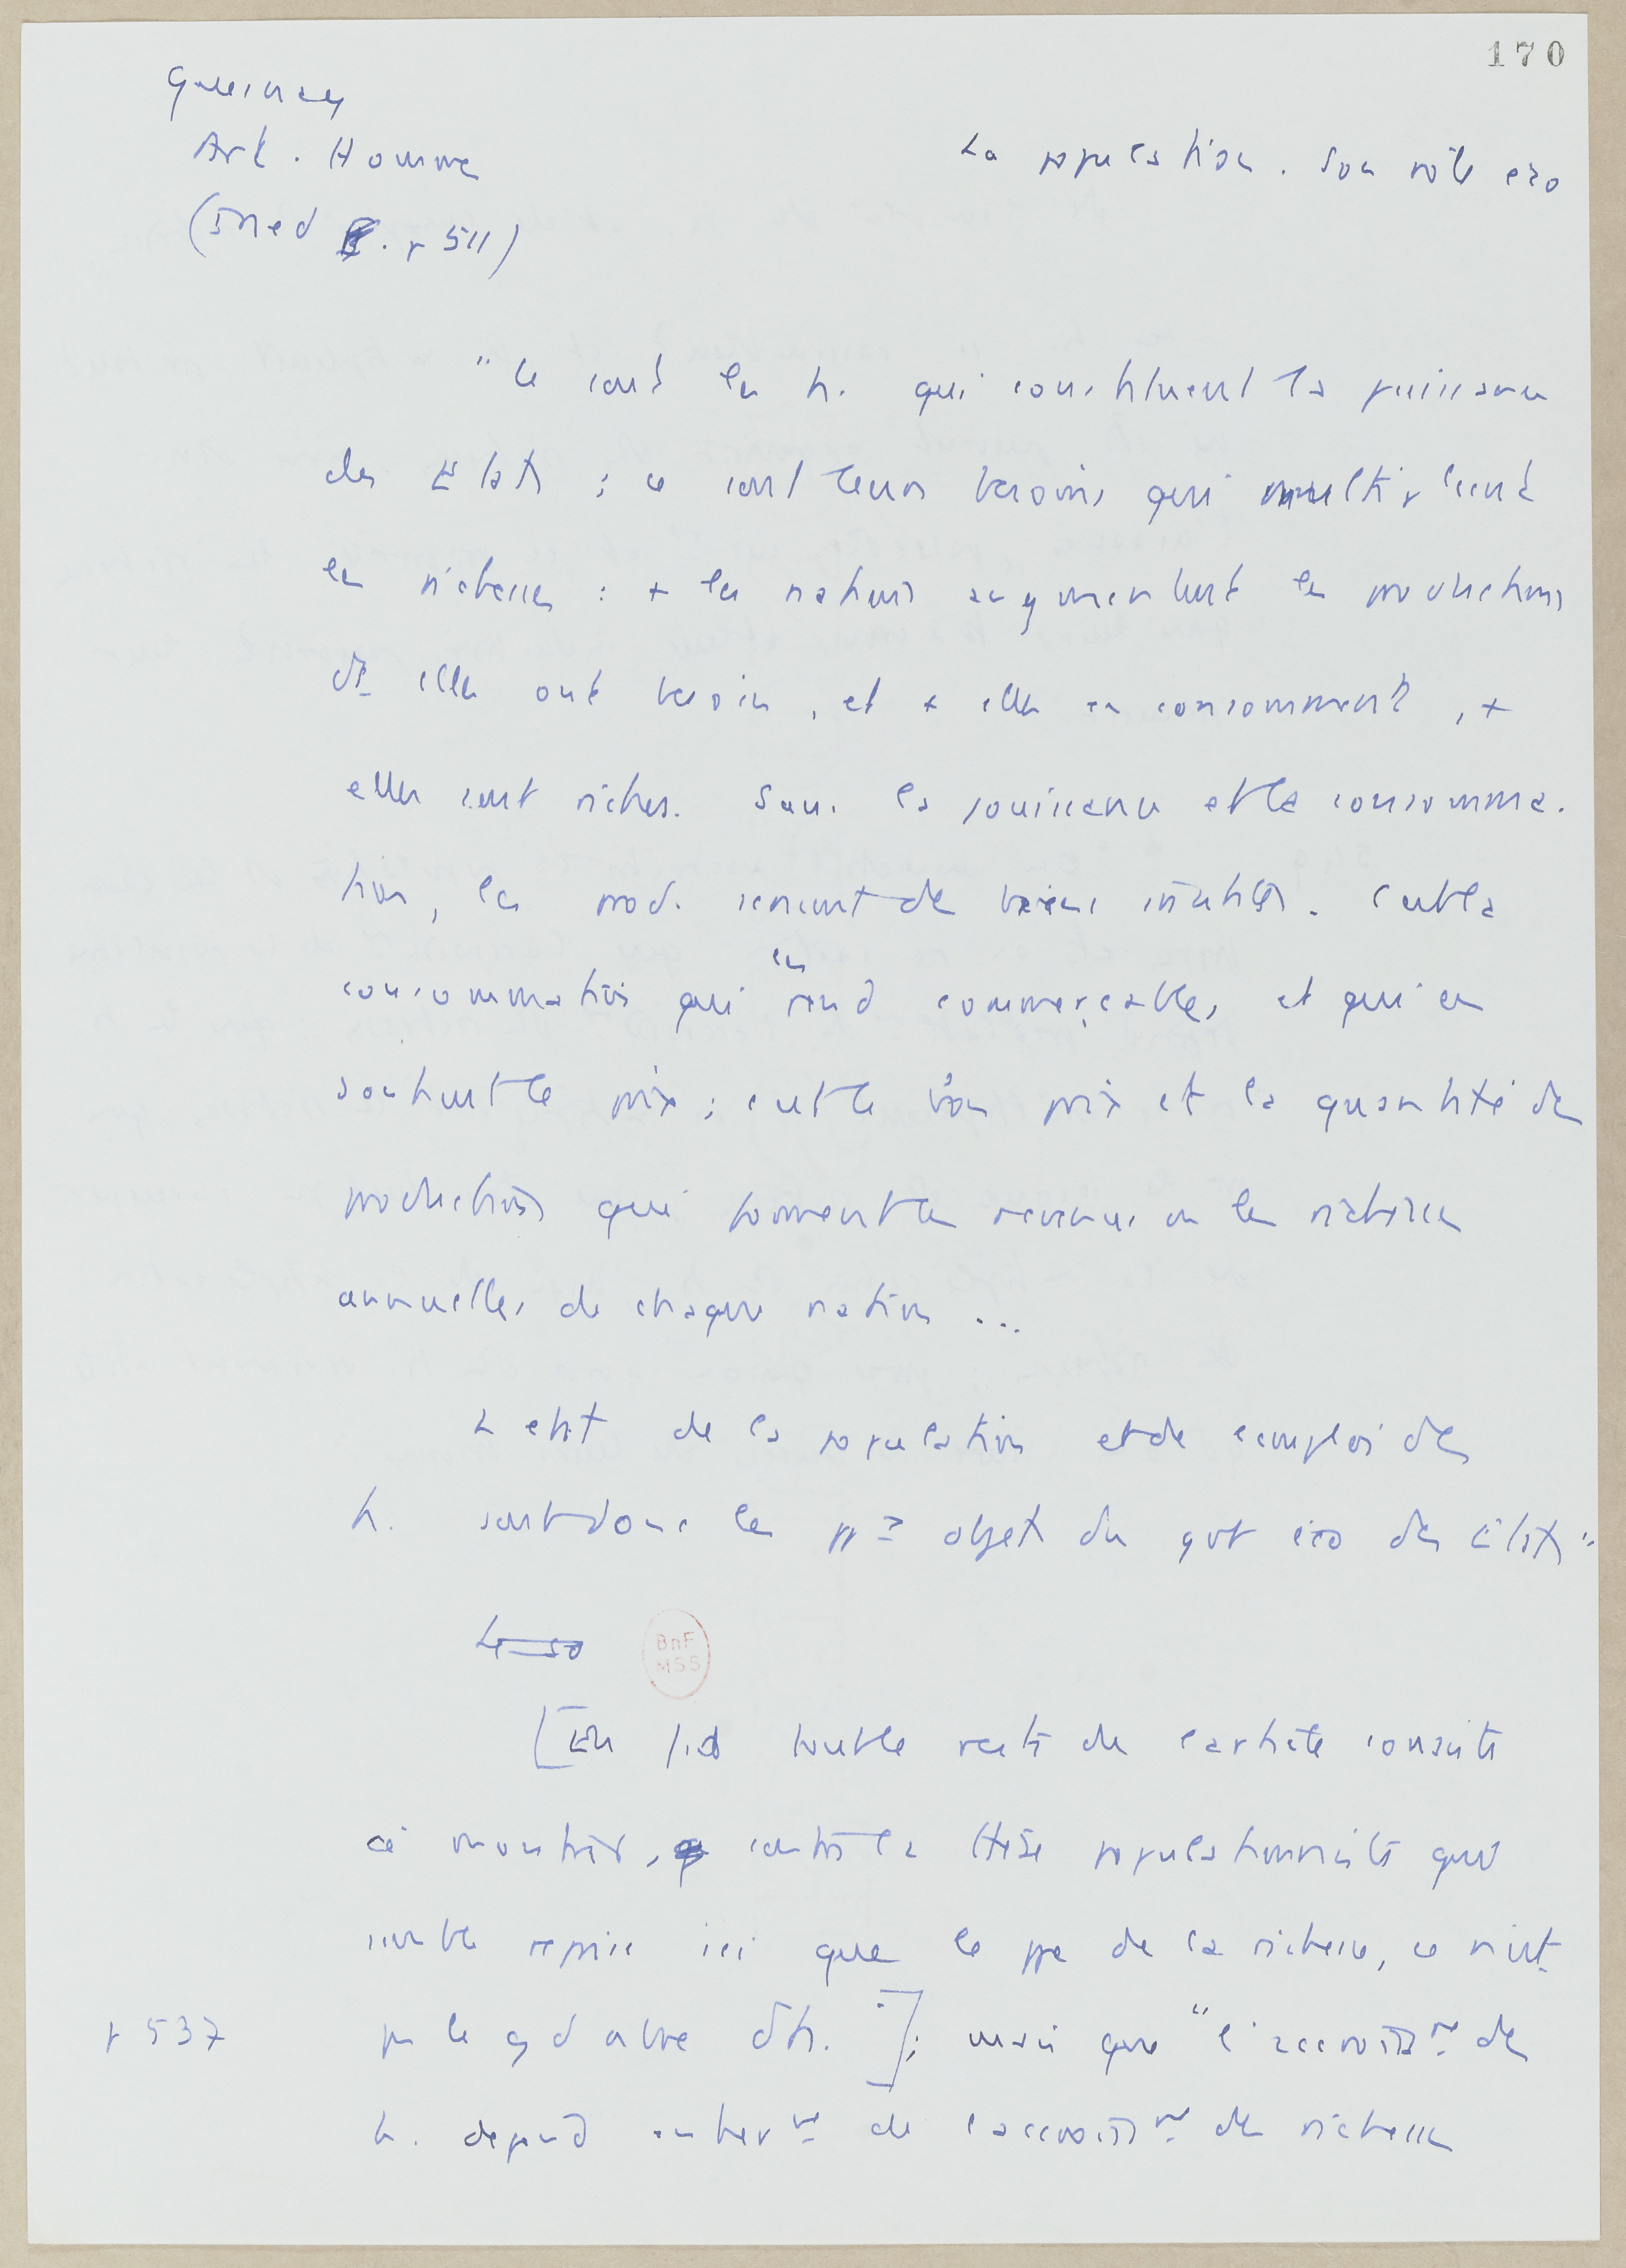 170
Quesnay
Art. Homme
(Ined p 511)
La population. Son rôle eco
"Ce sont les h. qui constituent la puissance
des Etats ; ce sont leurs besoins qui multiplient
les richesses : + les nations augmentent les productions
dt elles ont besoin, et + elles en consomment, +
elles sont riches. Sans la jouissance et la consomma-
tion, les prod. seraient des biens inutiles. C'est la
consommation qui les rend commerçables, et qui en
soutient le prix ; c'est le bon prix et la quantité des
productions qui forment les revenus ou les richesses
annuelles de chaque nation ...
L'état de la population et de l'emploi des
h. sont donc les ppx objets du gvt eco des Etats"
Le so
[En fait tout le reste de l'article consiste
à montrer, contre la thèse populationniste qui
semble reprise ici que le ppe de la richesse, ce n'est
p 537 pas le gd nbre d'h.]; mais que "l'accroissmt des
h. dépend entiermt de l'accroissmt des richesses
BnF
MSS